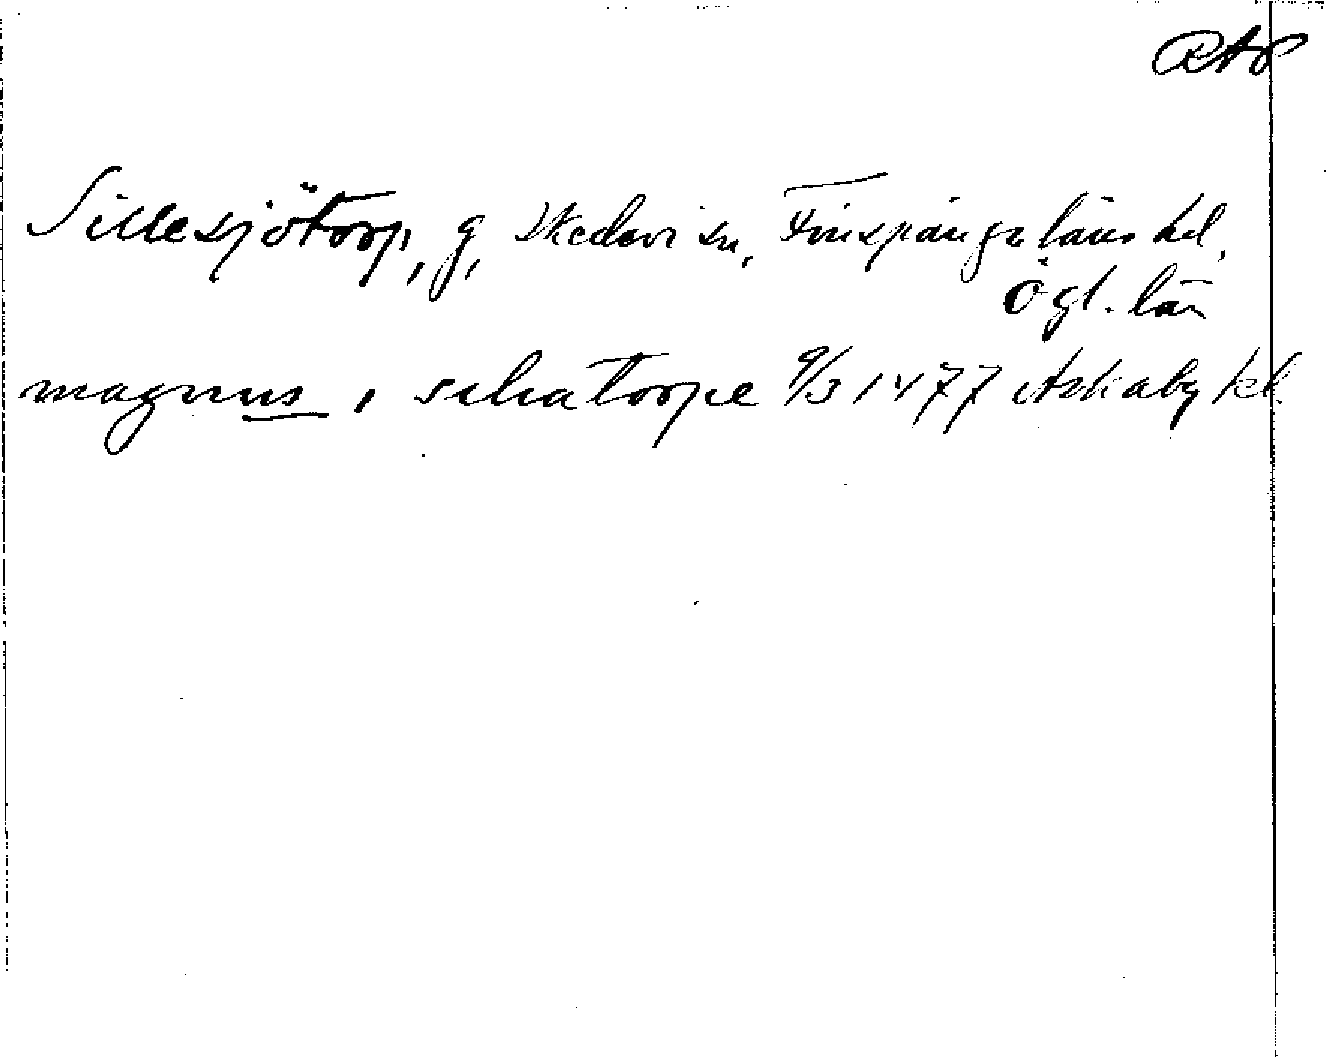 RAP
Sillesjötorp, g, Skedevi sn, Finspångs läns hd,
Ögl. län
magnus i selsatorpe 9/3 1477 Askaby kl.